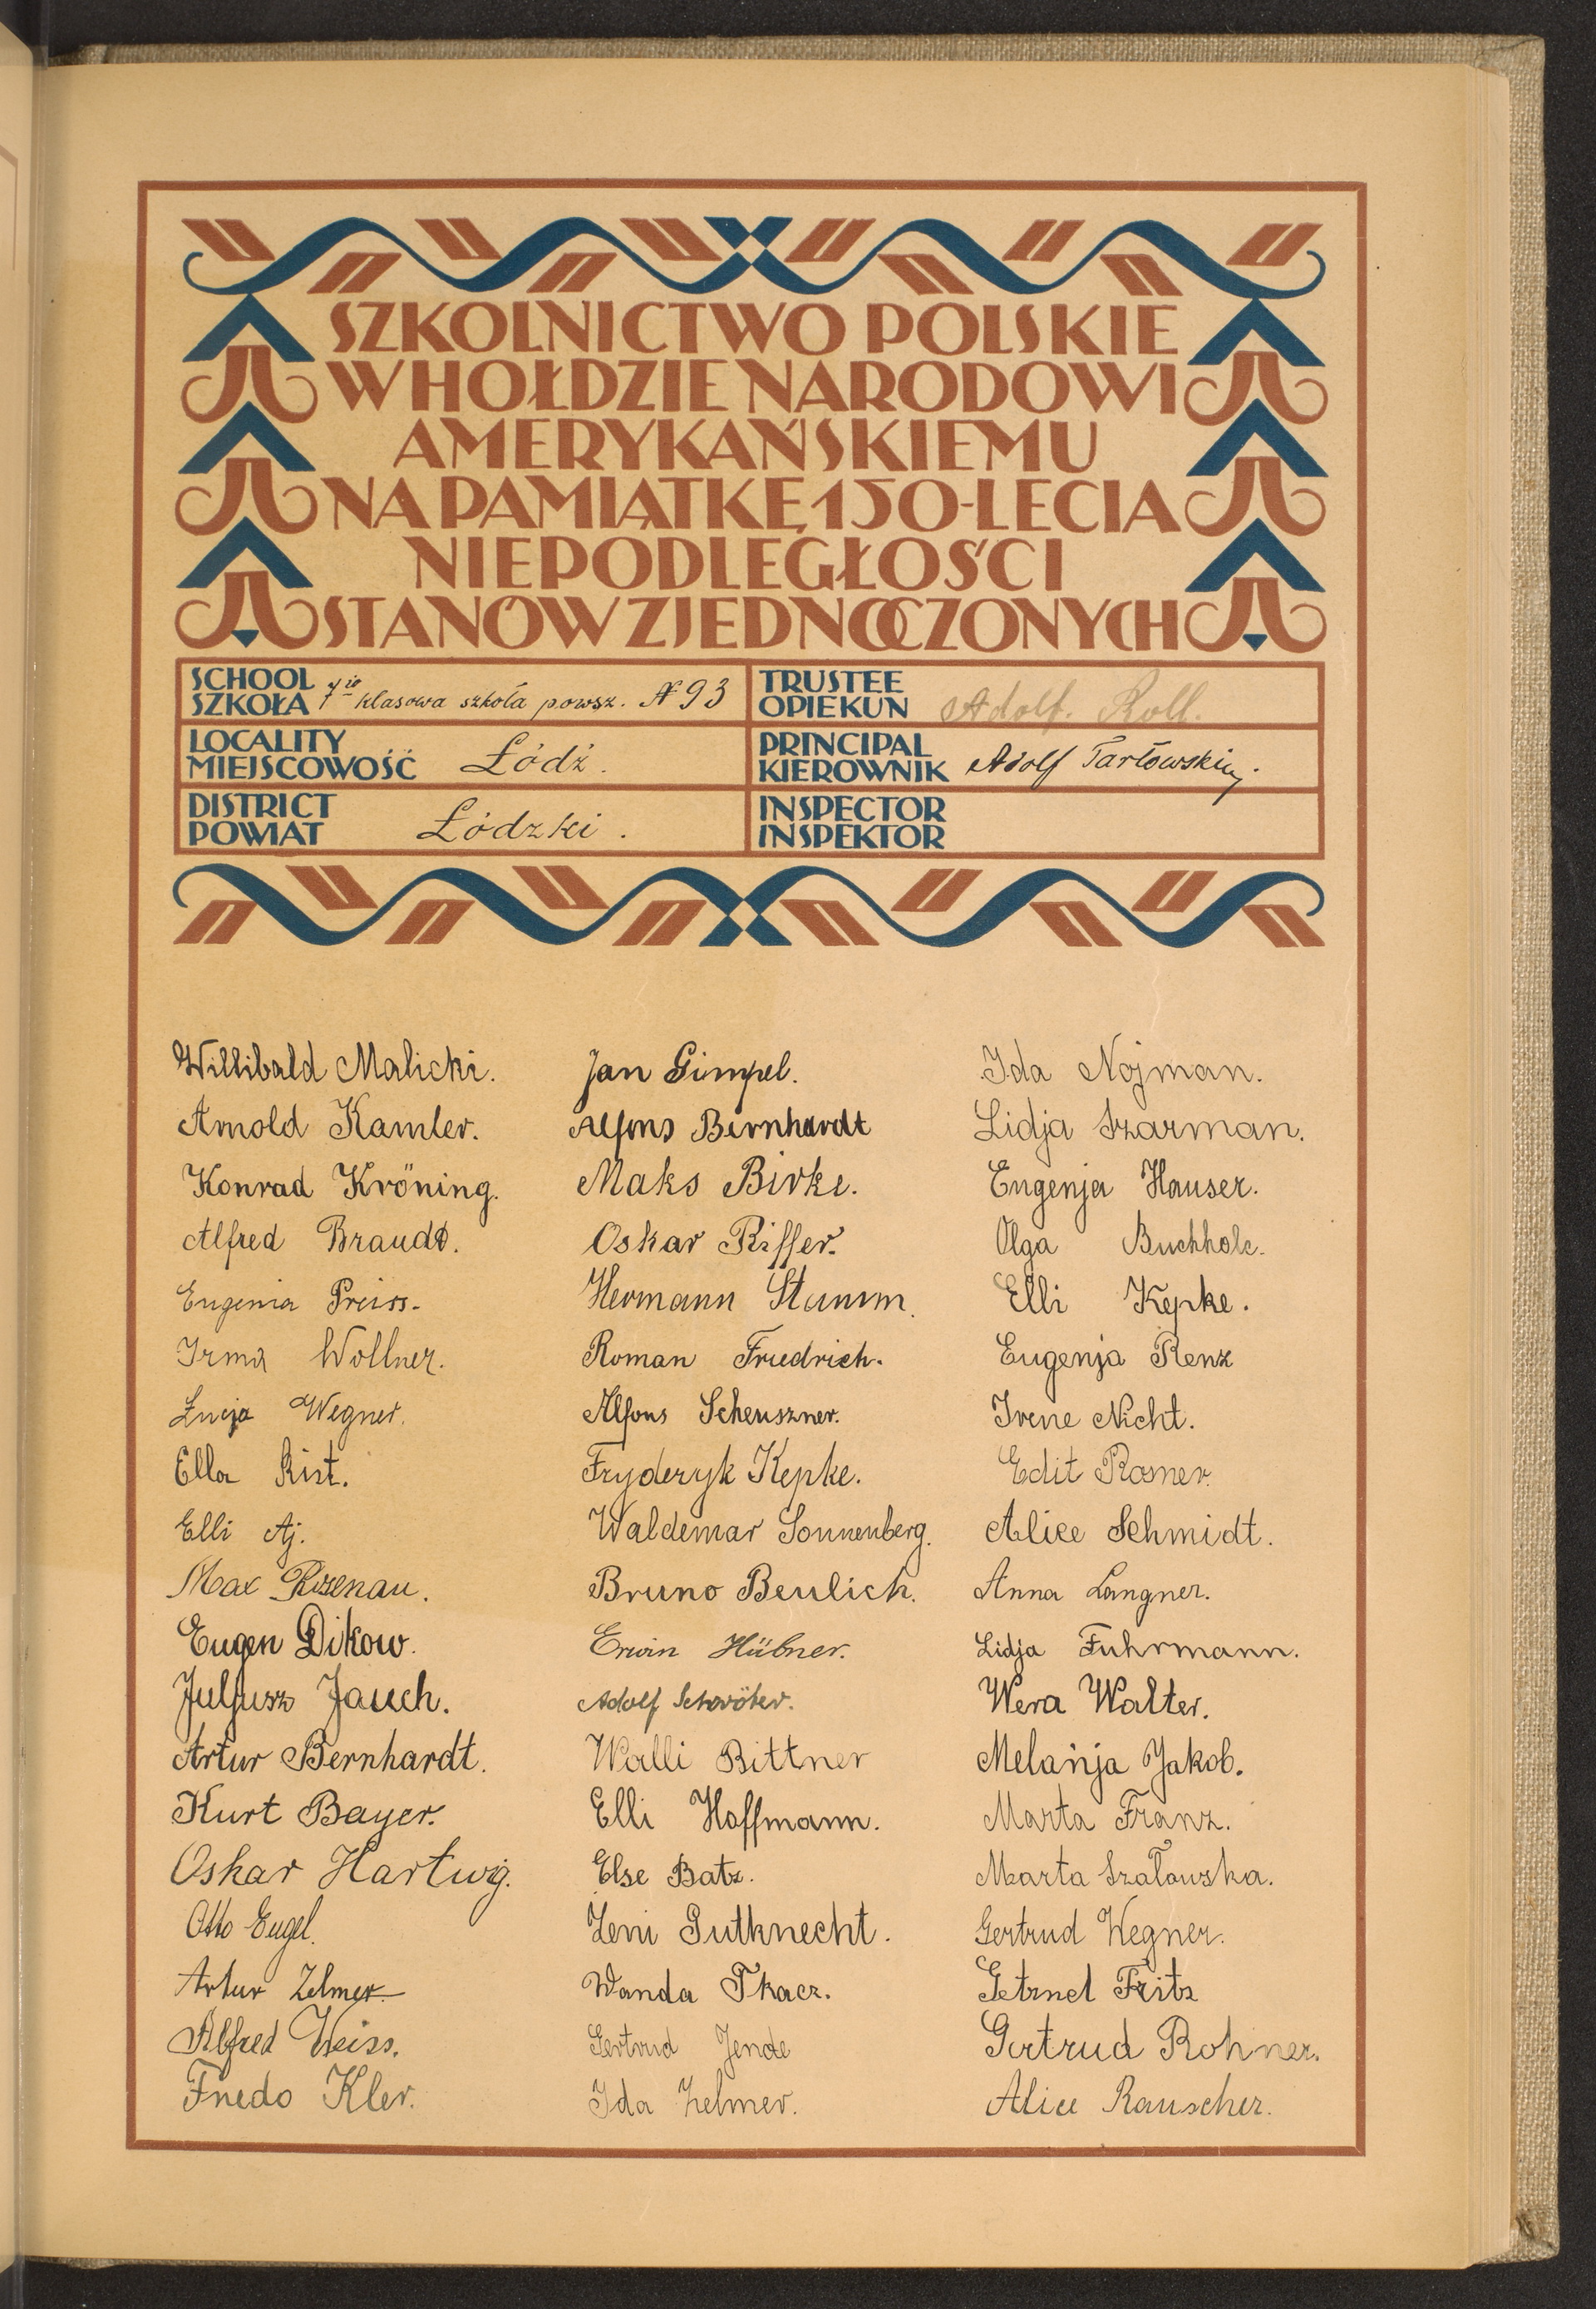 SZKOLNICTWO POLSKIE
W HOŁDZIE NARODOWI
AMERYKAŃSKIEMU
NA PAMIĄTKĘ 150-LECIA
NIEPODLEGŁOŚCI
STANÓW ZJEDNOCZONYCH
SCHOOL
SZKOŁA 7io klasowa szkoła powsz. № 93
TRUSTEE
OPIEKUN Adolf. Roll.
LOCALITY
MIEJSCOWOŚĆ Łódź.
PRINCIPAL
KIEROWNIK Adolf Tarłowski
DISTRICT
POWIAT Łódzki.
INSPECTOR
INSPEKTOR
Willibald Malicki.
Arnold Kamler.
Konrad Kröning.
Alfred Braudt.
Eugenia Preiss.
Irma Wollner.
Łucja Wegner.
Ella Rist.
Elli Aj.
Max Rizenau.
Eugen Dikow.
Juljusz Jauch.
Artur Bernhardt.
Kurt Bayer.
Oskar Hartwig.
Otto Engel.
Artur Zelmer.
Alfred Weiss.
Fredo Kler.
Jan Gimpel.
Alfons Bernhardt
Maks Birke.
Oskar Riffer.
Hermann Stamm.
Roman Friedrich.
Alfons Scheuszner.
Fryderyk Kepke.
Waldemar Sonnenberg.
Bruno Beulich.
Erwin Hübner.
Adolf Schröter.
Walli Bittner
Elli Hoffmann.
Else Batz.
Zeni Gutknecht.
Wanda Tkacz.
Gertrud Jende
Ida Zelmer.
Ida Nojman.
Lidja Szarman.
Eugenja Hauser.
Olga Buchholc.
Elli Kepke.
Eugenja Renz
Irene Nicht.
Edit Rosner.
Alice Schmidt.
Anna Langner.
Lidja Fuhrmann.
Wera Walter.
Melanja Jakob.
Marta Franz.
Marta Szałowska.
Gertrud Wegner.
Fritz
Gertrud Rohner.
Alice Rauscher.